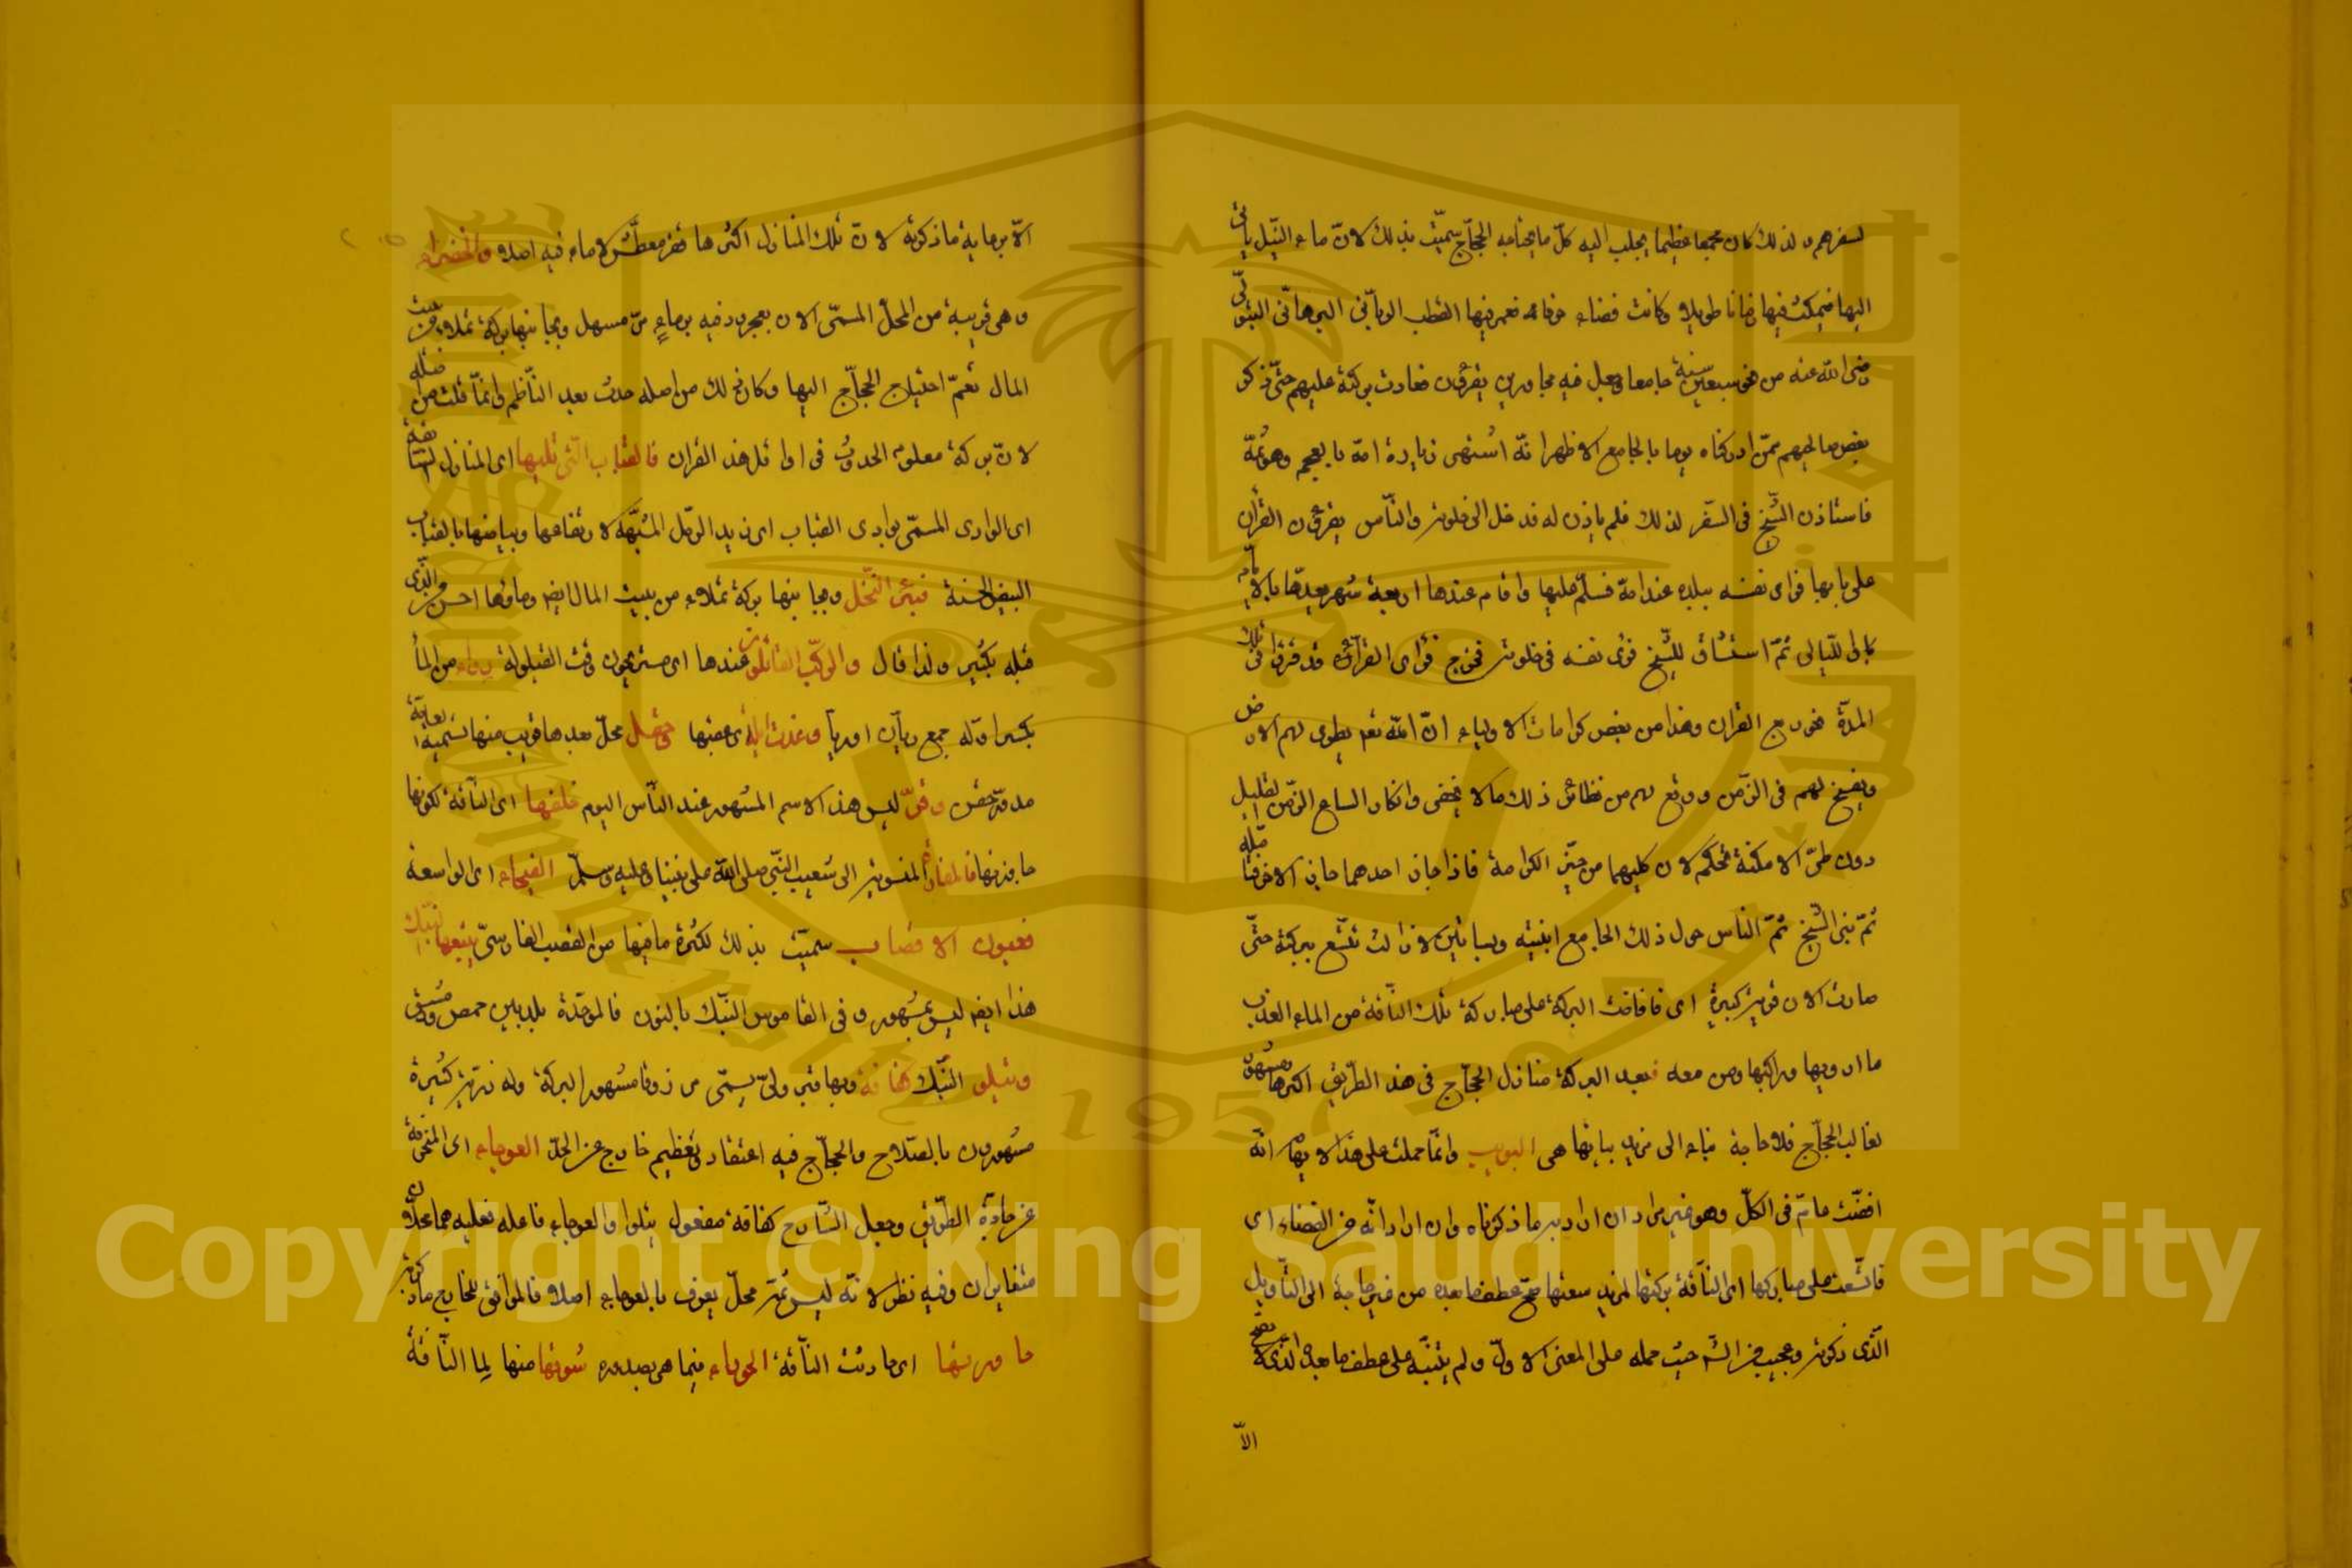 لسفرهم ولذلك كان مجمعا عظيما يجلب اليه كل ما يحتاجه الحجاج سميت بذلك لان ماء النيل ياتى
اليها فيمكث فيها زمانا طويلا وكانت فضاء فعمر فيها القطب الربانى البرهانى
رضى الله عنه من نحو سبعين سنة جامعا وجعل فيه مجاورين يقرؤن فعادت بركته عليهم حتى ذكر
بعض صالحيهم ممن ادركناه يوما بالجامع الازهر انه اشتهى زيارة امه وهو ثمة
فاستاذن الشيخ فى السفر لذلك فلم ياذن له فدخل الى خلوته والناس يقرؤن القرآن
على بابها فراى نفسه ببلده عند امه فسلم عليها واقام عندها اربعة شهر يعدها بالايام
بل الليالى ثم اشتاق للشيخ فراى نفسه فى خلوته فخرج فراى القراء قد قرؤا فى تلك
المدة نحو ربع القرآن وهذا من بعض كرامات الاولياء ان الله تعم يطوى لهم الارض
ويفسح لهم فى الزمن ووقع لهم من نظائر ذلك ما لا يخفى وانكار اتساع الزمن القليل
دون طى الامكنة تحكم لان كليهما من حيز الكرامة فاذا جاز احدهما جاز الاخر مثله
ثم بنى الشيخ ثم الناس حول ذلك الجامع ابنية وبساتين لا زالت تتسع ببركته حتى
صارت الان قرية كبيرة اى فافاضت البركة على مباركة تلك الناقة من الماء العذب
ما ارويها وراكبها ومن معه فبعد البركة منازل الحجاج فى هذا الطريق اكثرها مشهور
لغالب الحجاج فلا حاجة بناء الى مزيد بيانها هى البويب وانما حملت على هذا لانه
افضت عام فى الكل وهو غير مراد ان اراد به ما ذكرناه وان اراد انه من الفضاء اى
فاتسعت على مباركها اى الناقة بركتها لمزيد سعتها صح عطف ما بعده من غير حاجة الى التاويل
الذى ذكرته وعجيب من الش حيث حمله على المعنى الاول ولم يتنبه على عطف ما بعده الذى لا يصح
الا
الا برعاية ما ذكرته لان تلك المنازل اكثرها قفر معطش لا ماء فيه اصلا والخضراء
وهى قريبة من المحل المسمى الان بعجرود فيه بر ماء من مسهل وبجانبها بركة تملاء من بيت
المال نعم احتياج الحجاج اليها وكان ذلك من اصله حدث بعد الناظم وانما قلت من اصله
لان بركة معلوم الحدوث فى اوائل هذا القرآن فالقباب التى تليها اى المنازل
اى الوادى المسمى بوادى القباب اى زيد الرمل المشبهة لارتفاعها وبياضها بالقباب
البيض الحسنة فبئر النخل وبجانبها بركة تملاء من بيت المال ايضا وماؤها احسن من الذى
قبله بكثير ولذا قال والركب القائلون عندها اى مستريحون وقت القيلولة رواء من الماء
بكسر اوله جمع ريان او ريا وغدت ايلة عقبها وحقل محل بعدها قريب منها تسميه العامة
مدورة حقن وقر ليس هذا الاسم المشهور عند الناس اليوم خلفها اى الناقة لكونها
جاوزتها فالمغارة المنسوبة الى شعيب النبى صلى الله على نبينا وعليه وسلم الفيحاء اى الواسعة
فعيون الاقصاب سميت بذلك لكثرة ما فيها من القصب الفارسى يتبعها النبك
هذا ايضا ليس بمشهور وفى القاموس النبك بالنون فالموحدة بلد بين حمص ودمشق
ويتلو النبك كفافة وبها قبر ولى يسمى مرزوقا مشهور البركة وله ذرية كثيرة
مشهورون بالصلاح والحجاج فيه اعتقاد وتعظيم خارج عن الحد العوجاء اى المنحرفة
عن جادة الطريق وجعل الشارح كفافة مفعول يتلوا والعوجاء فاعله فعليه هما محلان
متغايران وفيه نظر لانه ليس ثم محل يعرف بالعوجاء اصلا فالموافق للخارج ما ذكرته
حاورتها اى حادثت الناقة الحوراء فيما هى بصدده شوقها منها لما الناقة
Copyright © King Saud University
King Saud University
1957